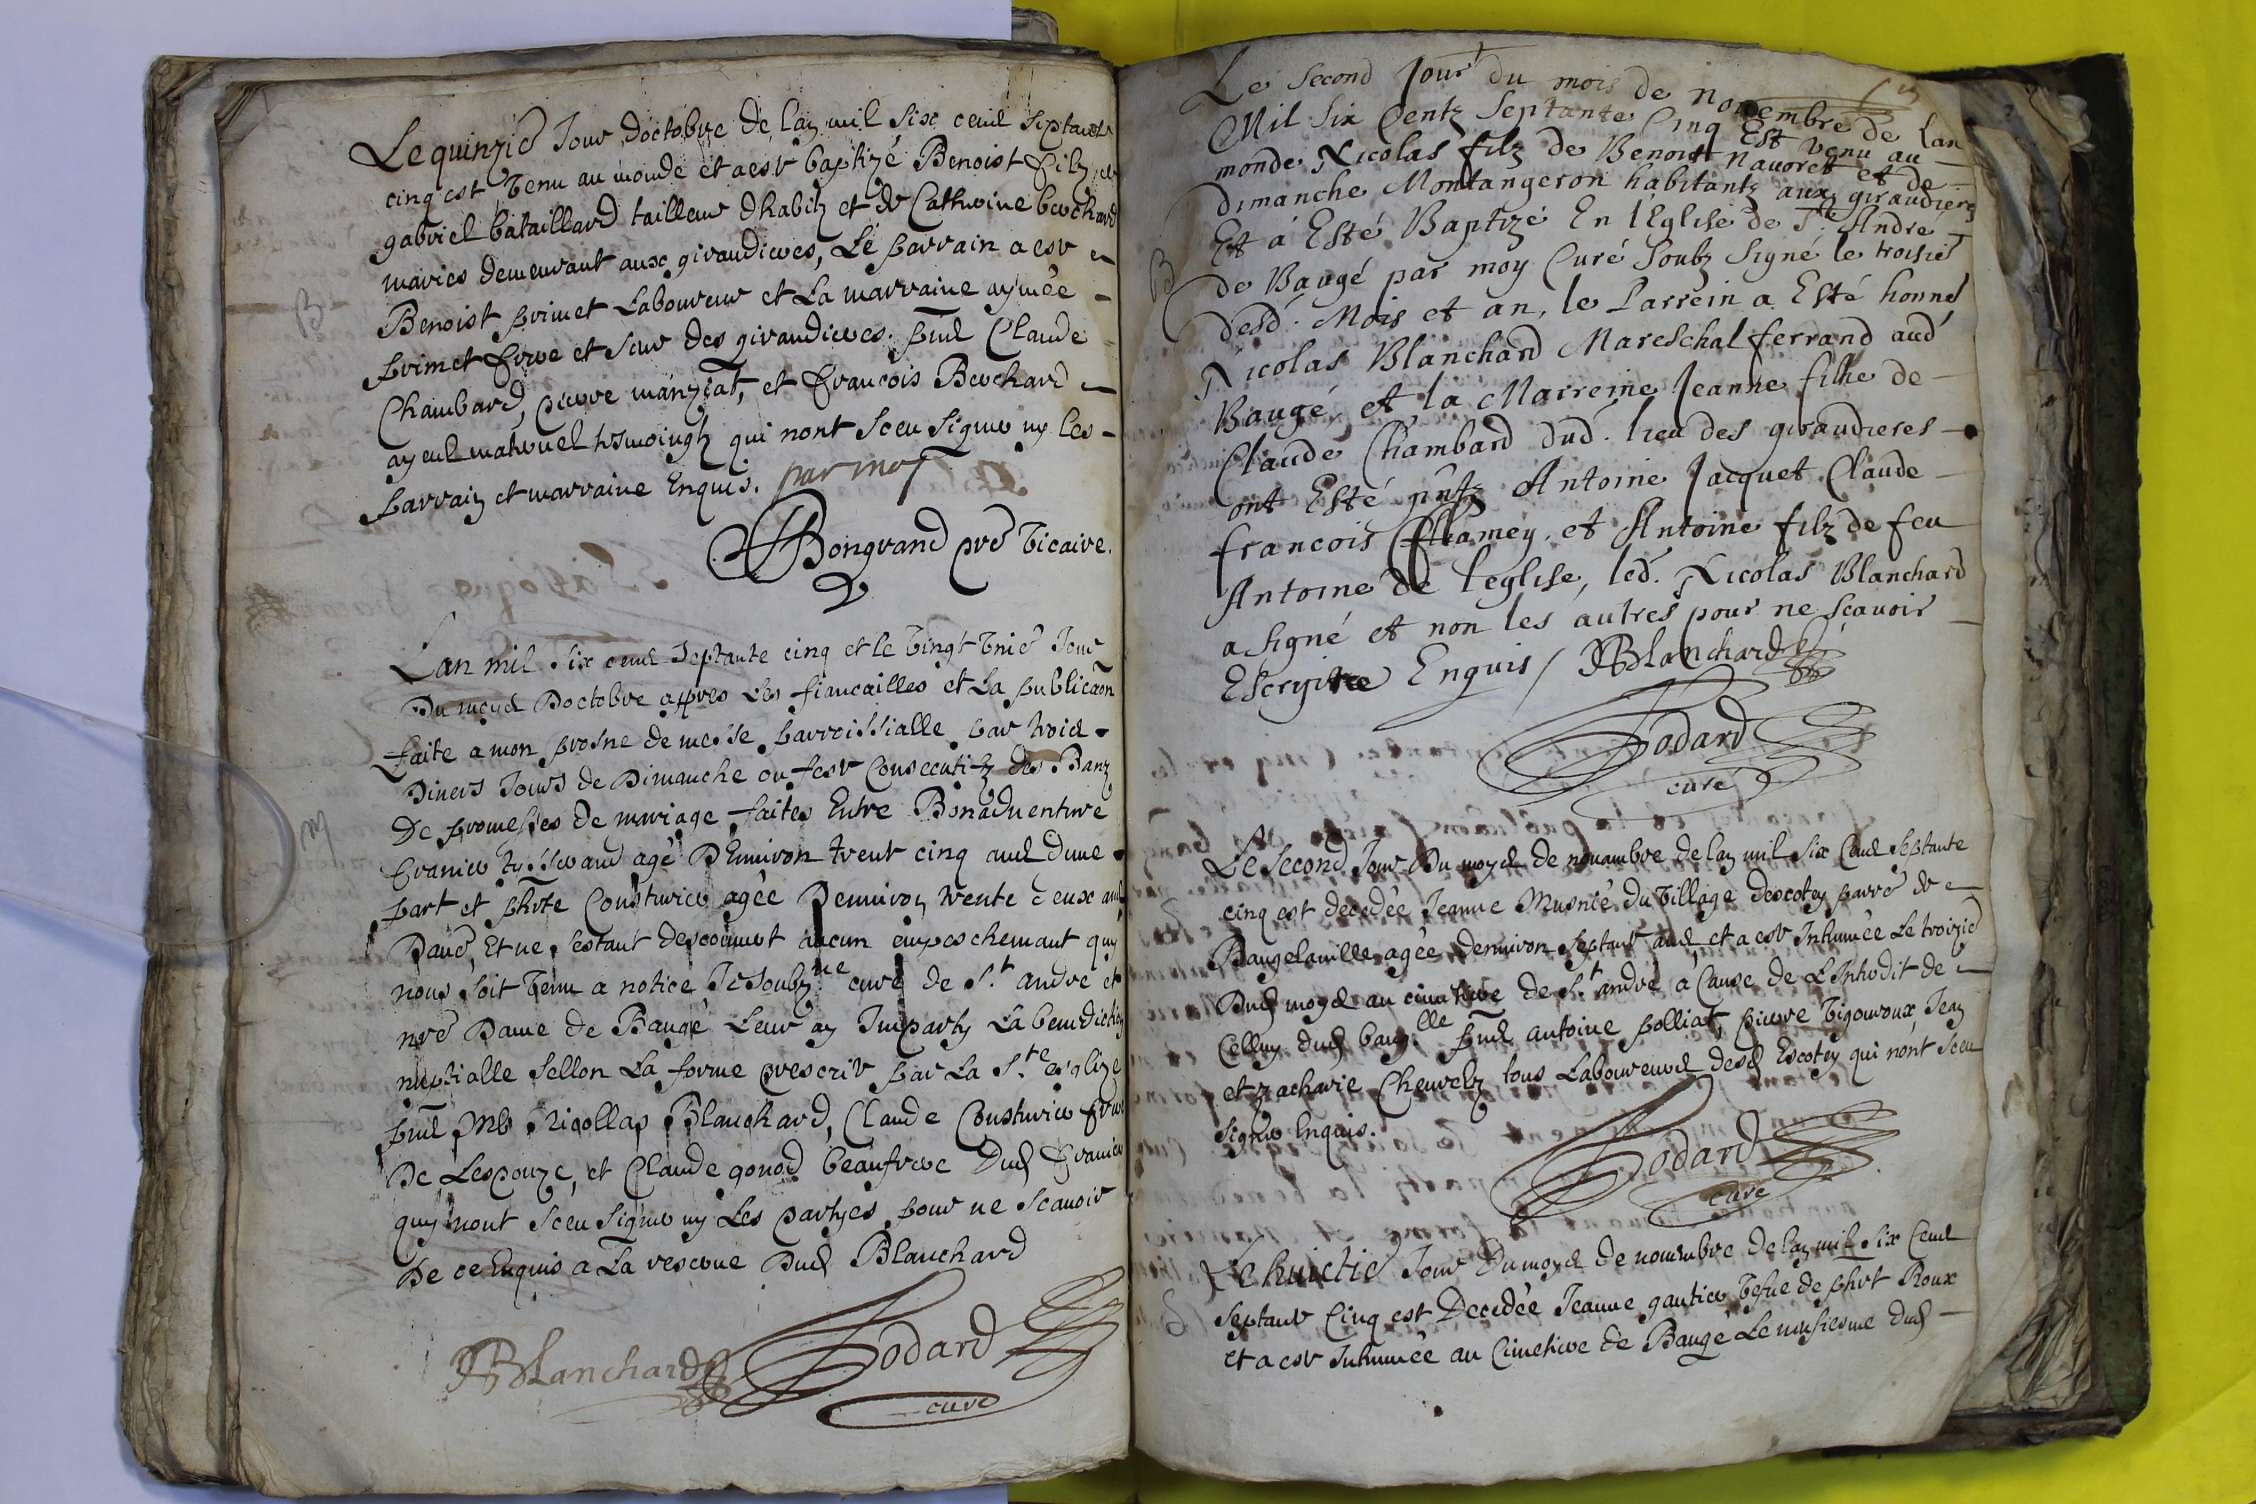 Le quinzie Jour doctobre de lan mil six cent septante
cinq est venu au monde et a este baptizé Benoist filz de
gabriel bataillard tailleur dhabitz et de Catherine berchard
maries demeurant aux giraudieres, Le parrain a este
Benoist primet Laboureur et La marraine aymée
primet frere et seur des giraudieres. pnt Claude
Chambard, pierre manziat, et francois Berchard
ayeul maternel tesmoingtz qui nont sceu signer ny les
parrain et marraine Enquis. par moy
Bongrand pre vicaire.
B
Lan mil six cent septante cinq et le vingt unie Jour
Du moys Doctobre appres Les fiancailles et La publicaon
faite a mon prosne de messe parroissialle par trois
Divers Jours de Dimanche ou feste Consecutifz des Banz
De promesses de mariage faites Entre Bonaventure
franier tysserand agé Denviron trente cinq ans dune
part et phte Cousturier agée Denviron trente deux ans
Daue, Et ne sestant descouvert aucun empeschemant quy
nous soit venu a notice Je soubzne curé de St. andré et
nre Dame de Baugé Leur ay Imparty La benediction
nuptialle sellon La forme prescrite par La Ste. esglize
pnt Me Nicollas Blanchard, Claude Cousturier frere
De Lespouze, et Claude gonod beaufrere Dud franier
quy nont sceu signer ny Les partyes pour ne scavoir
De ce Enquis a La reserve Dud Blanchard
M
NBlanchard
Godard
curé
Le second Jour du mois de novembre de lan
Mil six Centz septante Cinq Est venu au
monde Nicolas filz de Benoist navoret et de
dimanche Montangeron habitantz aux giraudieres
Et a Esté Baptizé En l'Eglise de St. Andre
de Baugé par moy Curé soubz signé le troisie
desd. Mois et an, le Parrein a Esté honnes
Nicolas Blanchard Mareschal ferrand aud
Baugé et la Marreine Jeanne fille de
Claude Chambard dud. lieu des giraudieres
ont Esté pntz Antoine Jacquet Claude
francois Chamey et Antoine filz de feu
Antoine de leglise, led. Nicolas Blanchard
a signé et non les autres pour ne scavoir
Escryre Enquis / NBlanchard
Godard
curé
Le second Jour Du moys de novambre de lan mil six Cent septante
cinq est decedée Jeanne Musnié du village descotey parre de
Baugelaville agée denviron septante ans et a este Inhumée Le troizie
Dud moys au cimetiere de St. andré a Cause de L'Interdit de
Celluy dud baug.lle pnt antoine polliat, pierre vigouroux Jean
et zacharie Chevretz tous Laboureurs desd Escotey qui nont sceu
signer Enquis.
Godard
curé
Le huictie Jour Du moys de novembre de lan mil six Cent
septante Cinq est Decedée Jeanne gautier vefue de phrt Roux
et a este Inhumée au Cimetiere de Baugé Le neufiesme dud